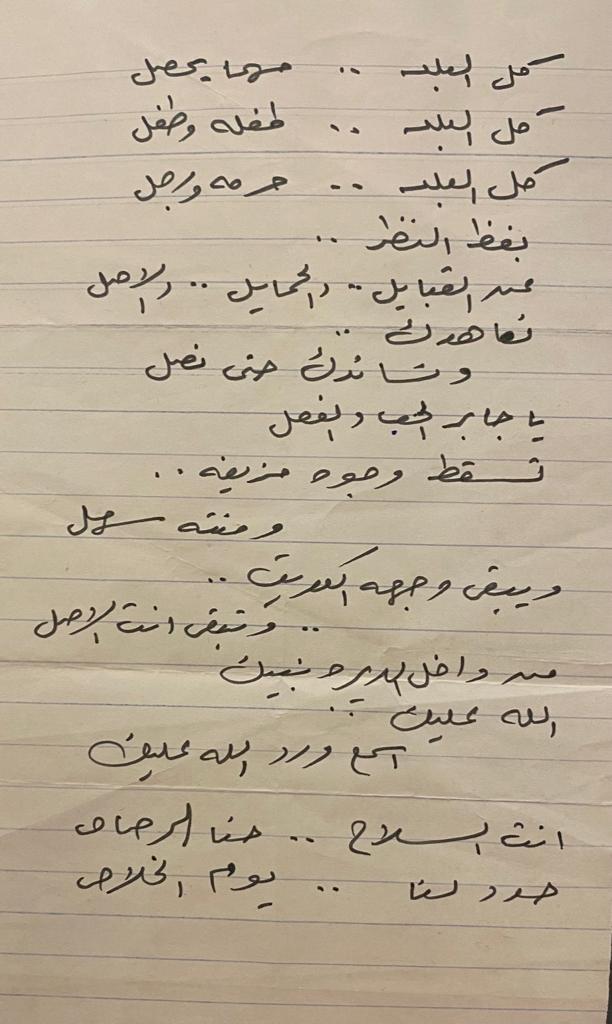 كل البلد .. مهما يحصل
كل البلد .. طفله وطفل
كل البلد .. حرمه ورجل
بغظ النظر ..
عن القبايل .. والحمايل .. والاصل
نعاهدك ..
ونساندك حتى نصل
يا جابر الحب والفعل
تسقط وجوه مزيفه ..
ومنته سهل
ويبقى وجهه الكويت ..
.. وتبقى انت الاصل
من داخل الديره نبيك
الله عليك ..
اسمع ورد الله عليك
انت السلاح .. حنا الرصاص
حدد لنا .. يوم الخلاص